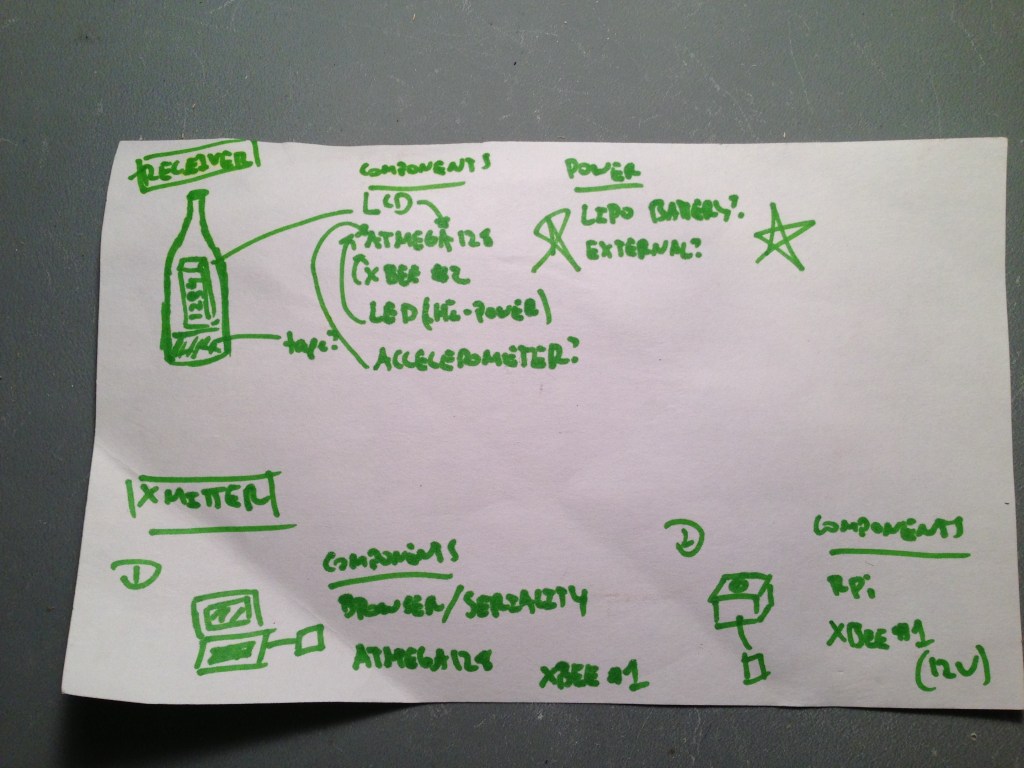 RECEIVER
COMPONENTS
LCD
ATMEGA 128
XBEE #2
LED (Hi-POWER)
ACCELEROMETER?
tape?
POWER
LIPO BATERY?
EXTERNAL?
XMITTER
1
COMPONENTS
BROWSER/SERIALITY
ATMEGA128
XBEE #1
1
COMPONENTS
RPi
XBEE #1
(12V)